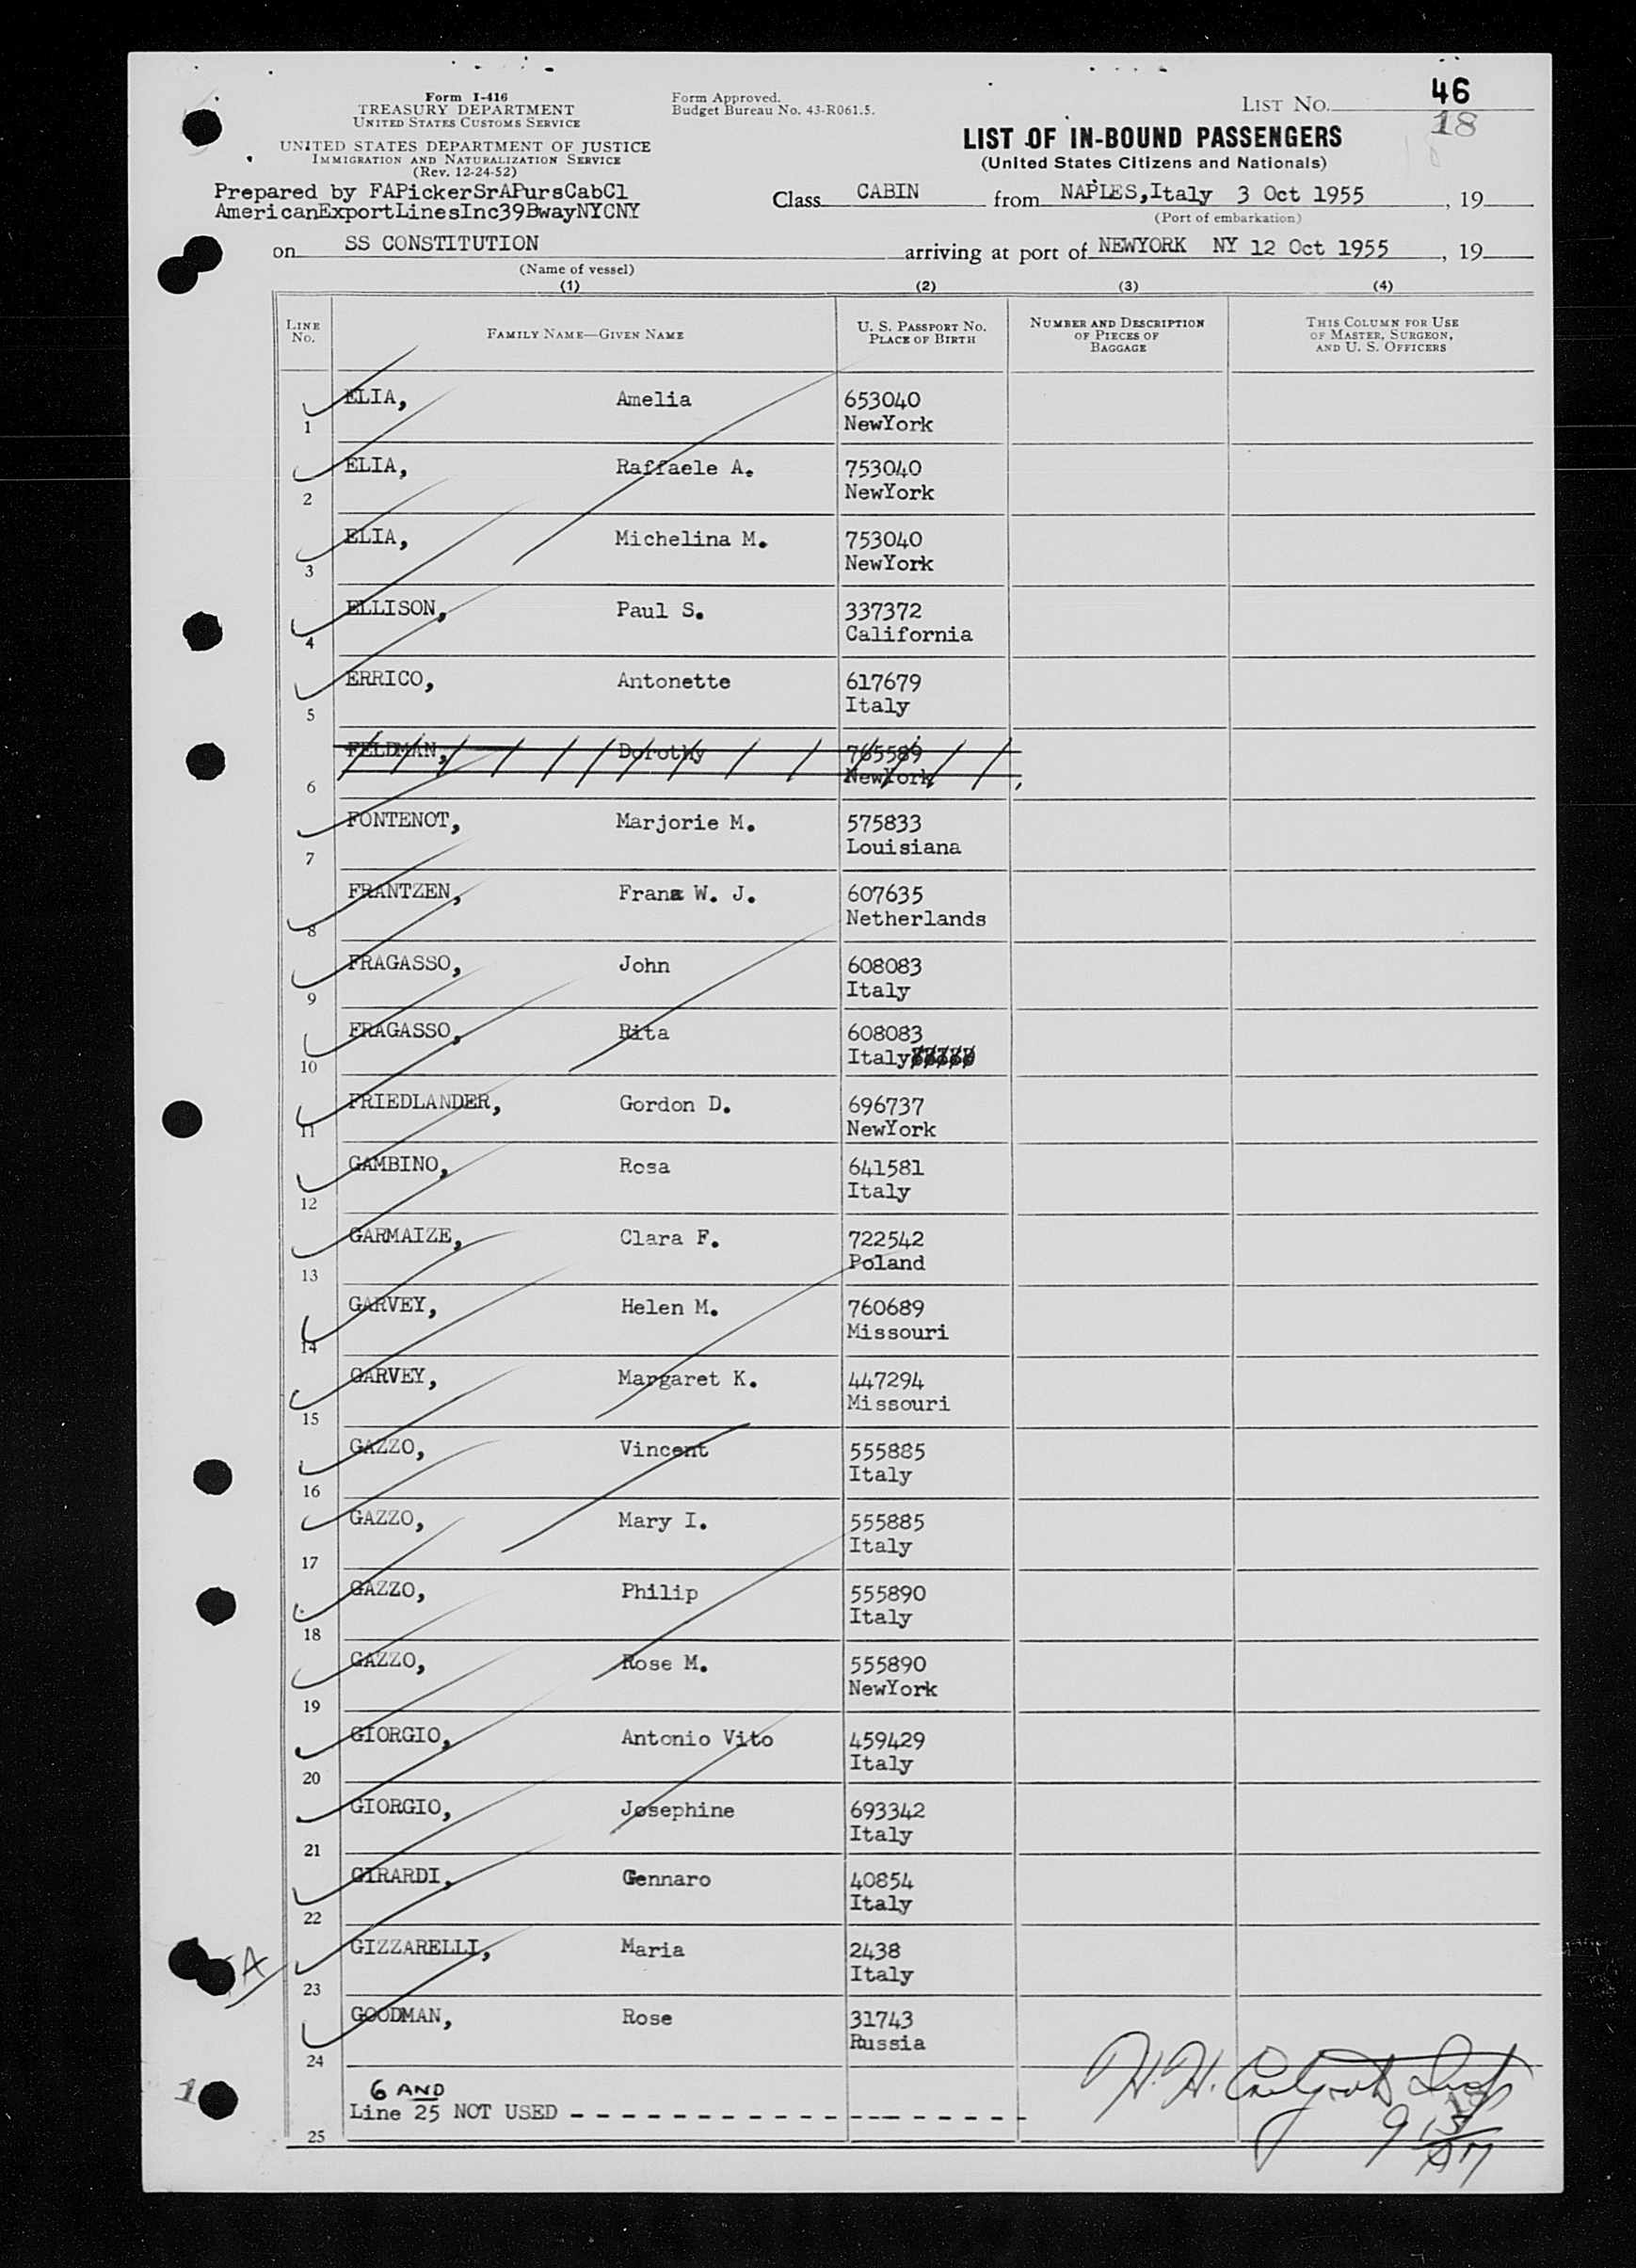 Form I-416
TREASURY DEPARTMENT
UNITED STATES CUSTOMS SERVICE
UNITED STATES DEPARTMENT OF JUSTICE
IMMIGRATION AND NATURALIZATION SERVICE
(Rev. 12-24-52)
Prepared by FAPickerSrAPursCabCl
AmericanExportLinesInc39BwayNYCNY
Form Approved.
Budget Bureau No. 43-R061.5.
LIST NO. 46
18
LIST OF IN-BOUND PASSENGERS
(United States Citizens and Nationals)
Class CABIN from NAPLES,Italy 3 Oct 1955, 19
(Port of embarkation)
on SS CONSTITUTION arriving at port of NEWYORK NY 12 Oct 1955, 19
(Name of vessel)
(1) (2) (3) (4)
LINE NO. FAMILY NAME—GIVEN NAME U. S. PASSPORT NO. PLACE OF BIRTH NUMBER AND DESCRIPTION OF PIECES OF BAGGAGE THIS COLUMN FOR USE OF MASTER, SURGEON, AND U. S. OFFICERS
ELIA, Amelia 653040
1 NewYork
ELIA, Raffaele A. 753040
2 NewYork
ELIA, Michelina M. 753040
3 NewYork
ELLISON, Paul S. 337372
4 California
ERRICO, Antonette 617679
5 Italy
FELDMAN, Dorothy 765589
6 NewYork
FONTENOT, Marjorie M. 575833
7 Louisiana
FRANTZEN, Franz W. J. 607635
8 Netherlands
FRAGASSO, John 608083
9 Italy
FRAGASSO, Rita 608083
10 Italy
FRIEDLANDER, Gordon D. 696737
11 NewYork
GAMBINO, Rosa 641581
12 Italy
GARMAIZE, Clara F. 722542
13 Poland
GARVEY, Helen M. 760689
14 Missouri
GARVEY, Margaret K. 447294
15 Missouri
GAZZO, Vincent 555885
16 Italy
GAZZO, Mary I. 555885
17 Italy
GAZZO, Philip 555890
18 Italy
GAZZO, Rose M. 555890
19 NewYork
GIORGIO, Antonio Vito 459429
20 Italy
GIORGIO, Josephine 693342
21 Italy
GIRARDI, Gennaro 40854
22 Italy
GIZZARELLI, Maria 2438
A
23 Italy
GOODMAN, Rose 31743
24 Russia
6 AND
Line 25 NOT USED
25
1
H. H.
9 15
AM